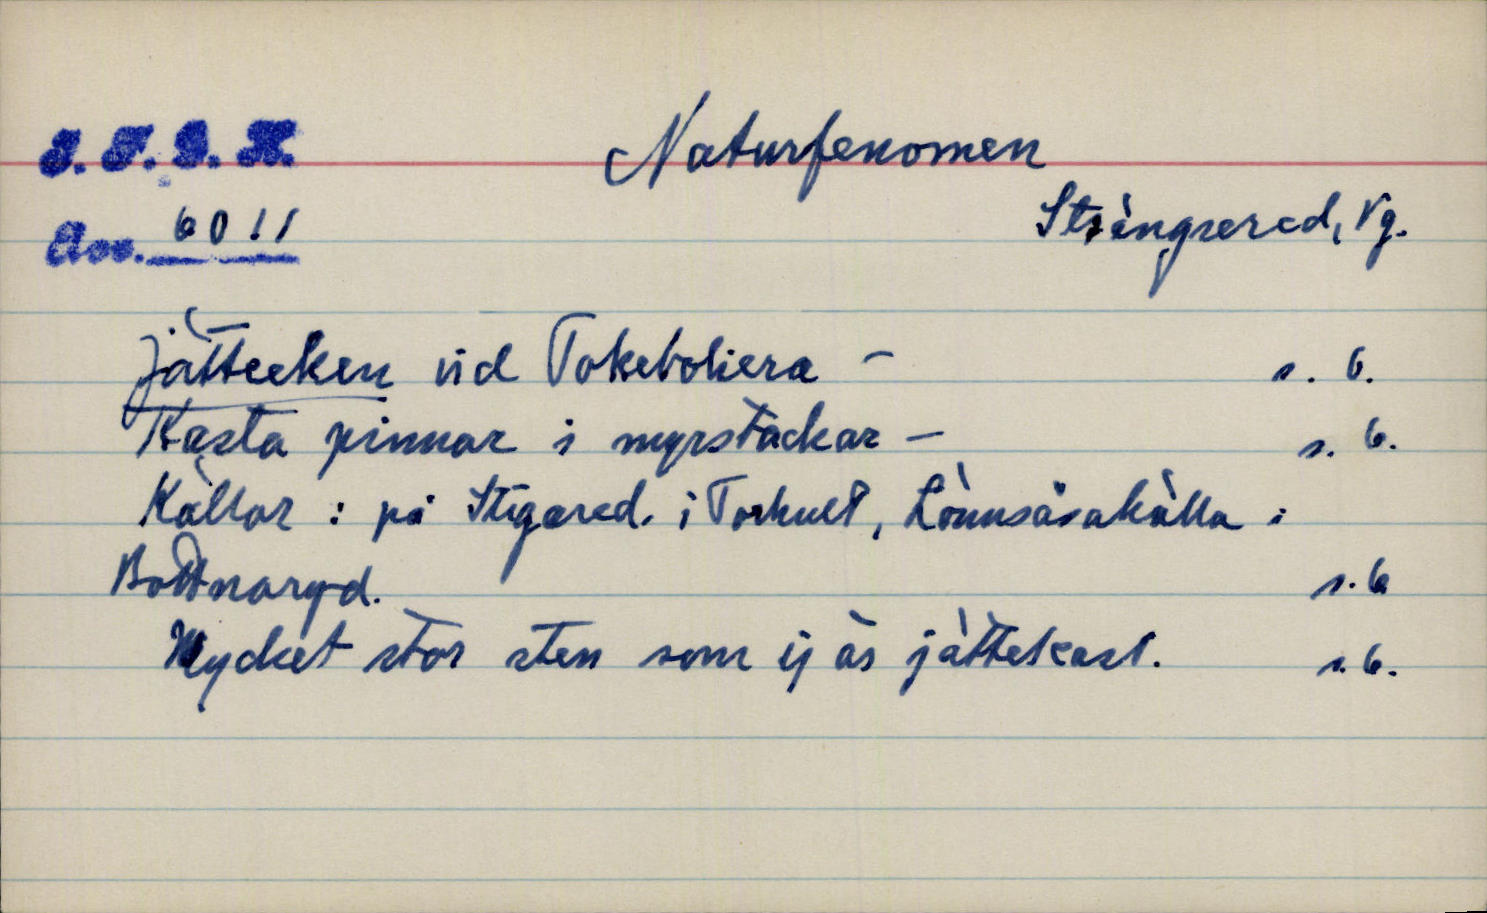 Naturfenomen
Strängsered, Vg.
Acc. 6011
Jätteeken vid Tokeboliera – s. 6.
Kasta pinnar i myrstackar – s. 6.
Källor : på Stigared. i Torhult, Lönnsåsakälla i
Bottnaryd. s. 6
Mycket stor sten som ej är jättekast. s. 6.